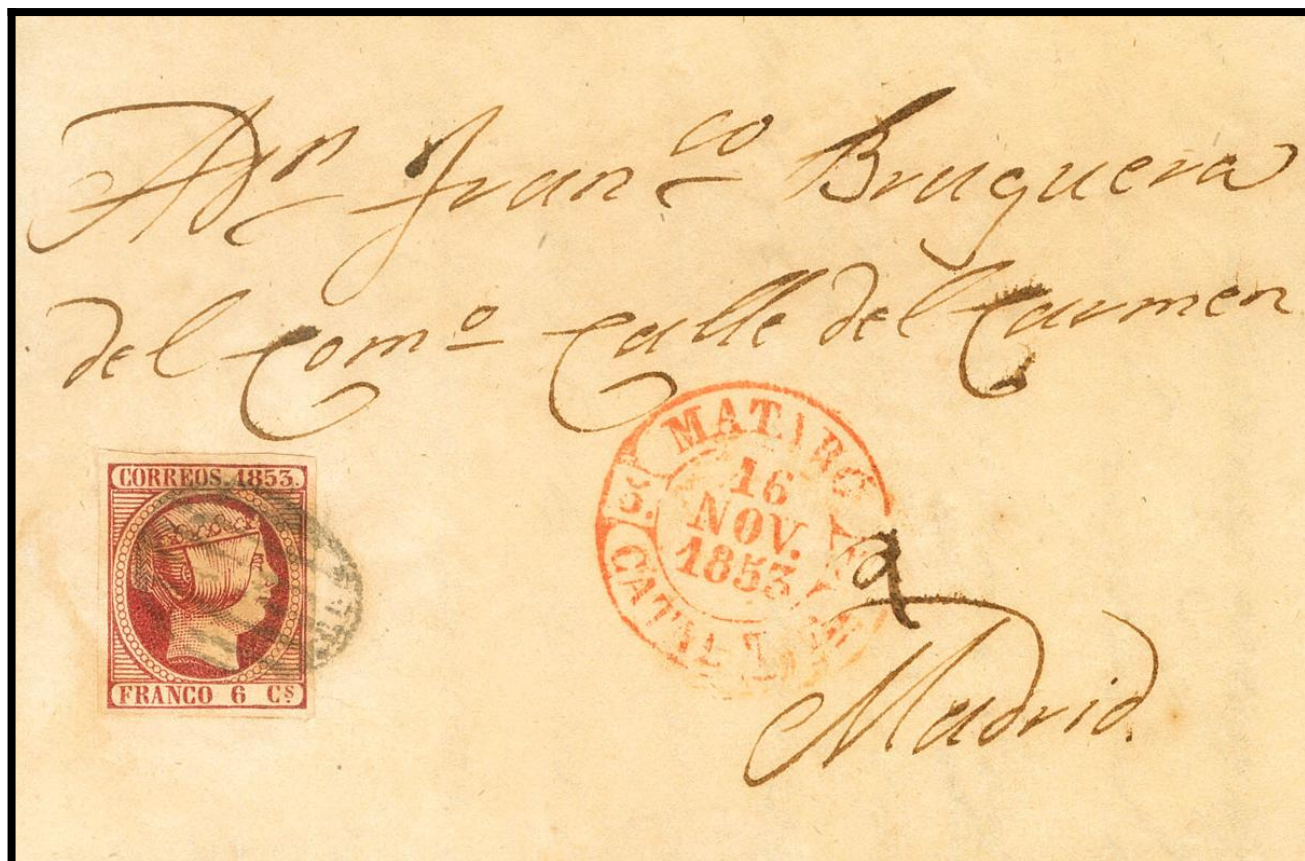 A Dn Franco Bruguera
del Como Calle del Carmen
CORREOS. 1853.
FRANCO 6 Cs
MATARO
16
NOV.
1853
CATALUÑA
Madrid.